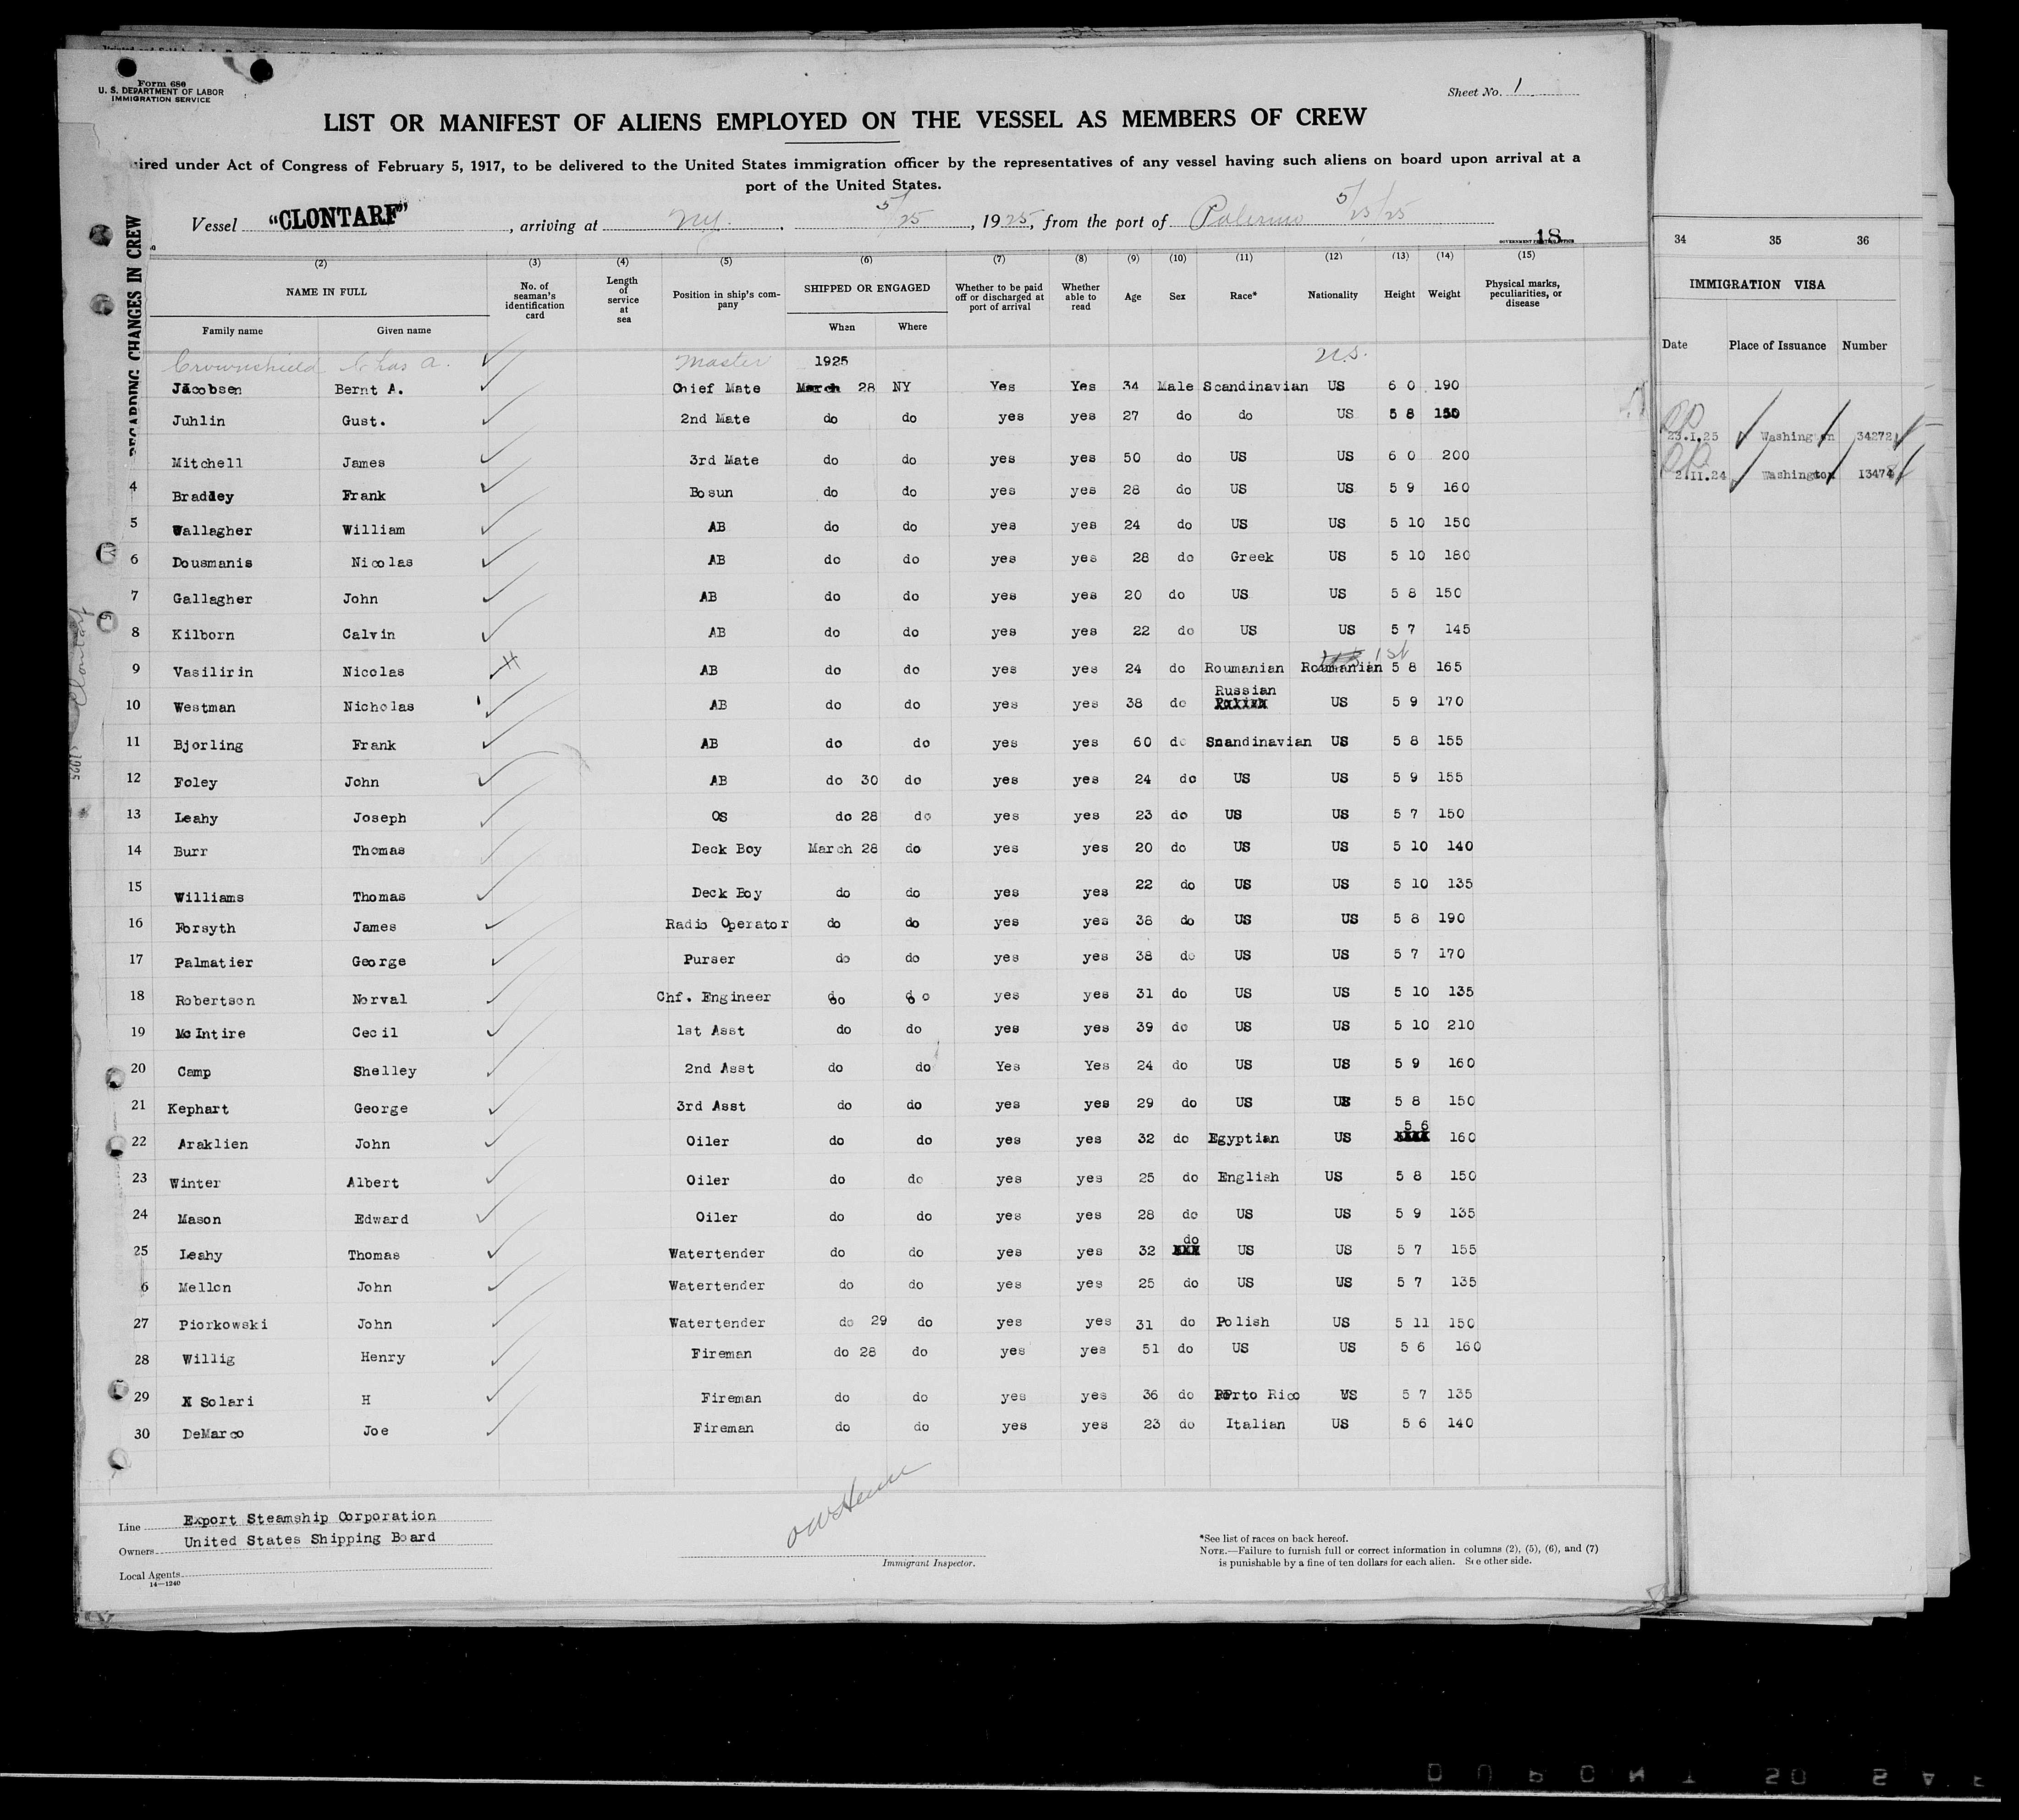 Form 680
U. S. DEPARTMENT OF LABOR
IMMIGRATION SERVICE
Sheet No. 1
LIST OR MANIFEST OF ALIENS EMPLOYED ON THE VESSEL AS MEMBERS OF CREW
ired under Act of Congress of February 5, 1917, to be delivered to the United States immigration officer by the representatives of any vessel having such aliens on board upon arrival at a
port of the United States.
Vessel "CLONTARF", arriving at NY., 5/25, 1925, from the port of Palermo 5/25/25
18
REGARDING CHANGES IN CREW
(2) (3) (4) (5) (6) (7) (8) (9) (10) (11) (12) (13) (14) (15)
NAME IN FULL
Family name Given name
No. of seaman's identification card
Length of service at sea
Position in ship's company
SHIPPED OR ENGAGED
When Where
Whether to be paid off or discharged at port of arrival
Whether able to read
Age Sex Race* Nationality Height Weight
Physical marks, peculiarities, or disease
Crowninshield Chas A. Master 1925 U.S.
Jacobsen Bernt A. Chief Mate March 28 NY Yes Yes 34 Male Scandinavian US 6 0 190
Juhlin Gust. 2nd Mate do do yes yes 27 do do US 5 8 150
Mitchell James 3rd Mate do do yes yes 50 do US US 6 0 200
4 Bradley Frank Bosun do do yes yes 28 do US US 5 9 160
5 Wallagher William AB do do yes yes 24 do US US 5 10 150
6 Dousmanis Nicolas AB do do yes yes 28 do Greek US 5 10 180
7 Gallagher John AB do do yes yes 20 do US US 5 8 150
8 Kilborn Calvin AB do do yes yes 22 do US US 5 7 145
9 Vasilirin Nicolas AB do do yes yes 24 do Roumanian Roumanian 1st 5 8 165
10 Westman Nicholas AB do do yes yes 38 do Russian US 5 9 170
11 Bjorling Frank AB do do yes yes 60 do Snandinavian US 5 8 155
12 Foley John AB do 30 do yes yes 24 do US US 5 9 155
13 Leahy Joseph OS do 28 do yes yes 23 do US US 5 7 150
14 Burr Thomas Deck Boy March 28 do yes yes 20 do US US 5 10 140
15 Williams Thomas Deck Boy do do yes yes 22 do US US 5 10 135
16 Forsyth James Radio Operator do do yes yes 38 do US US 5 8 190
17 Palmatier George Purser do do yes yes 38 do US US 5 7 170
18 Robertson Norval Chf. Engineer do do yes yes 31 do US US 5 10 135
19 McIntire Cecil 1st Asst do do yes yes 39 do US US 5 10 210
20 Camp Shelley 2nd Asst do do Yes Yes 24 do US US 5 9 160
21 Kephart George 3rd Asst do do yes yes 29 do US US 5 8 150
22 Araklien John Oiler do do yes yes 32 do Egyptian US 5 6 160
23 Winter Albert Oiler do do yes yes 25 do English US 5 8 150
24 Mason Edward Oiler do do yes yes 28 do US US 5 9 135
25 Leahy Thomas Watertender do do yes yes 32 do US US 5 7 155
6 Mellon John Watertender do do yes yes 25 do US US 5 7 135
27 Piorkowski John Watertender do 29 do yes yes 31 do Polish US 5 11 150
28 Willig Henry Fireman do 28 do yes yes 51 do US US 5 6 160
29 X Solari H Fireman do do yes yes 36 do Porto Rico US 5 7 135
30 DeMarco Joe Fireman do do yes yes 23 do Italian US 5 6 140
Line Export Steamship Corporation
Owners United States Shipping Board
Local Agents
14—1240
Immigrant Inspector.
*See list of races on back hereof.
NOTE.—Failure to furnish full or correct information in columns (2), (5), (6), and (7)
is punishable by a fine of ten dollars for each alien. See other side.
34 35 36
IMMIGRATION VISA
Date Place of Issuance Number
23.I.25 Washington 34272
2.II.24 Washington 13474
Clontarf
1925
DUPONT 50 SAF